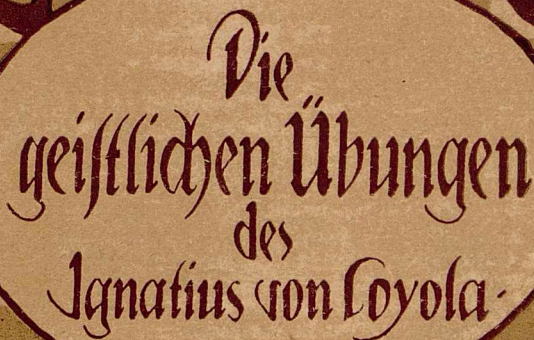 Die
geiſtlichen Übungen
des
Ignatius von Loyola.